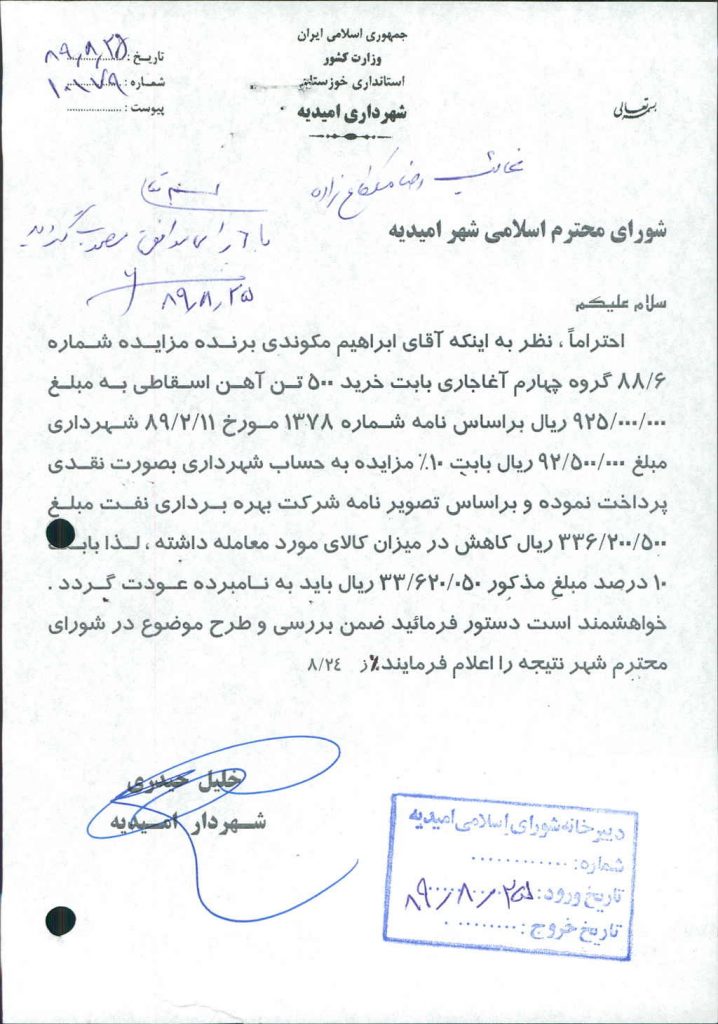 جمهوری اسلامی ایران
وزارت کشور
استانداری خوزستان
شهرداری امیدیه
بسمه تعالی
تاریخ : ۸۹,۸,۲۵
شماره : ۱۰۱۷۹
پیوست : ..............
رضا
بسمه تعالی
با ۶ رای موافق مصوب گردید
۸۹,۸,۲۵
شورای محترم اسلامی شهر امیدیه
سلام علیکم
احتراماً ، نظر به اینکه آقای ابراهیم مکوندی برنده مزایده شماره
۸۸/۶ گروه چهارم آغاجاری بابت خرید ۵۰۰ تن آهن اسقاطی به مبلغ
۹۲۵/۰۰۰/۰۰۰ ریال براساس نامه شماره ۱۳۷۸ مورخ ۸۹/۲/۱۱ شهرداری
مبلغ ۹۲/۵۰۰/۰۰۰ ریال بابت ۱۰٪ مزایده به حساب شهرداری بصورت نقدی
پرداخت نموده و براساس تصویر نامه شرکت بهره برداری نفت مبلغ
۳۳۶/۲۰۰/۵۰۰ ریال کاهش در میزان کالای مورد معامله داشته ، لذا بابت
۱۰ درصد مبلغ مذکور ۳۳/۶۲۰/۰۵۰ ریال باید به نامبرده عودت گردد .
خواهشمند است دستور فرمائید ضمن بررسی و طرح موضوع در شورای
محترم شهر نتیجه را اعلام فرمایند٪ز ۸/۲۴
خلیل حیدری
شهردار امیدیه
دبیرخانه شورای اسلامی امیدیه
شماره: ............
تاریخ ورود: ۸۹,۸,۲۵
تاریخ خروج : .........